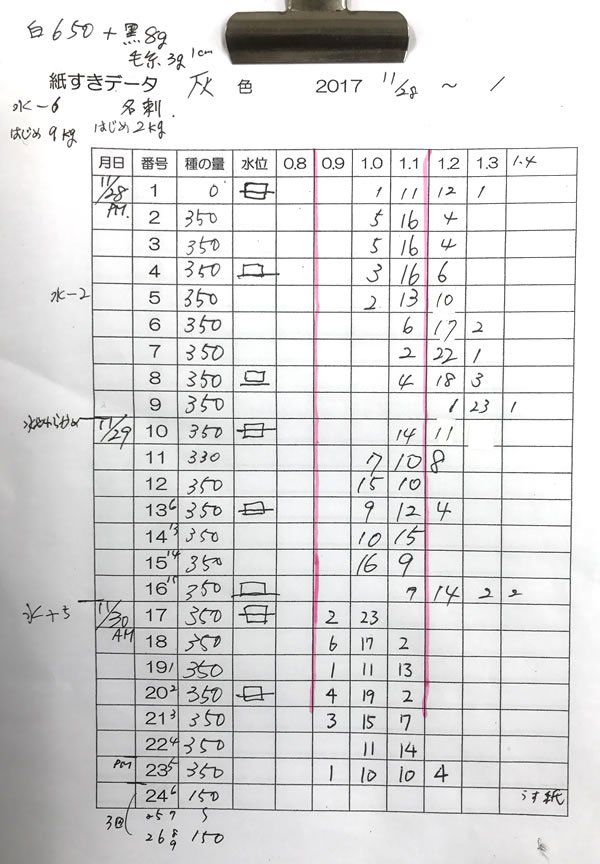 白650+黒8g
毛糸3g 1cm
紙すきデータ 灰 色 2017 11/28 ～ /
水-6 名刺.
はじめ9kg はじめ2kg
月日 番号 種の量 水位 0.8 0.9 1.0 1.1 1.2 1.3 1.4
11/28 1 0 1 11 12 1
PM. 2 350 5 16 4
3 350 5 16 4
4 350 3 16 6
水-2 5 350 2 13 10
6 350 6 17 2
7 350 2 22 1
8 350 4 18 3
9 350 1 23 1
11/29 10 350 14 11
11 330 7 10 8
12 350 15 10
13 6 350 9 12 4
14 13 350 10 15
15 14 350 16 9
16 15 350 7 14 2 2
水+5 11/30 17 350 2 23
AM 18 350 6 17 2
19 1 350 1 11 13
20 2 350 4 19 2
21 3 350 3 15 7
22 4 350 11 14
PM 23 5 350 1 10 10 4
24 6 150 うす紙
3回 25 7
26 8 9 150